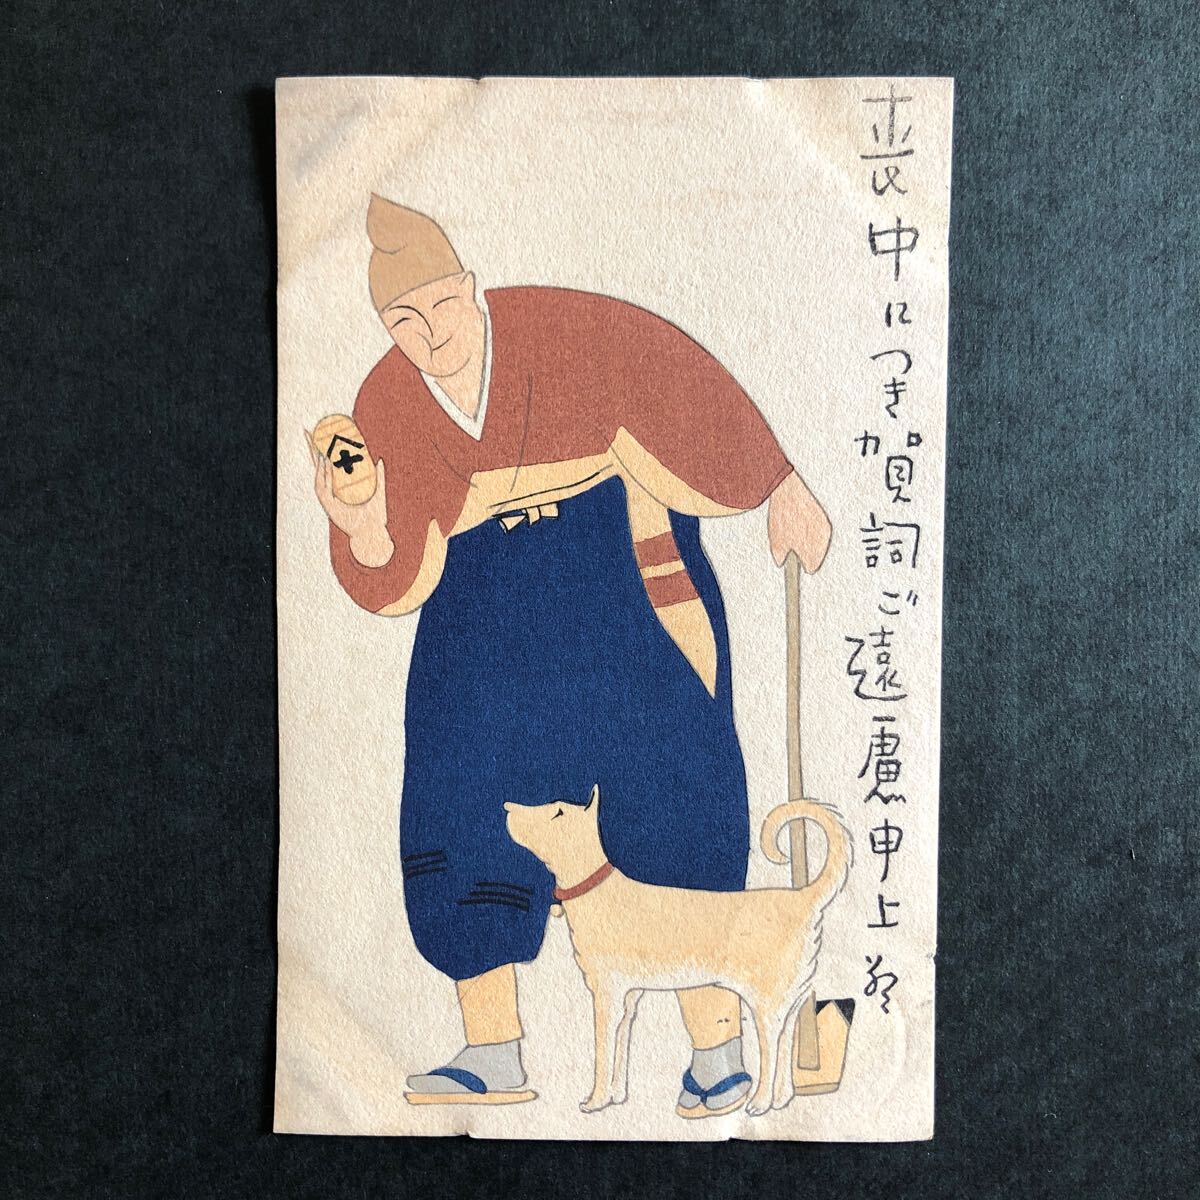 喪中につき賀詞ご遠慮申上候